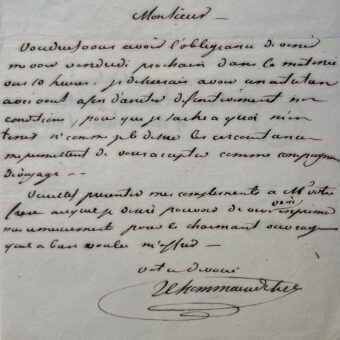 Monsieur
Voudriez vous avoir l'obligeance de venir
me voir vendredi prochain dans la matinée
vers 10 heures. je désirerais avoir un entretien
avec vous afin d'arrêter définitivement nos
conditions, pour que je sache a quoi m'en
tenir si comme je le désire les circonstances
me permettent de vous accepter comme compagnon
de voyage —
Veuillez présenter mes compliments a Mr votre
frère auquel je désire pouvoir de vive voix exprimer
mes remerciements pour le charmant ouvrage
qu'il a bien voulu m'offrir —
votre dévoué